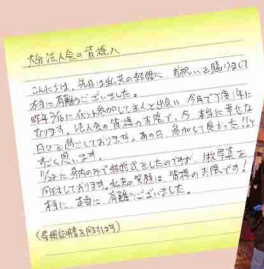 法人会の皆様へ
こんにちは。先日は私共の結婚に、お祝いを賜りまして
本当に有難うございました。
昨年5月にイベント参加して主人と出会い、今月で丁度1年に
なります。法人会の皆様のお陰で、今、本当に幸せな
日々を過ごしております。あの日、参加して良かった!!と
すごく思います。
に身内のみで結婚式をしたのですが、1枚写真を
同封しております。私共の笑顔は、皆様のお陰です!
本当に、有難うございました。